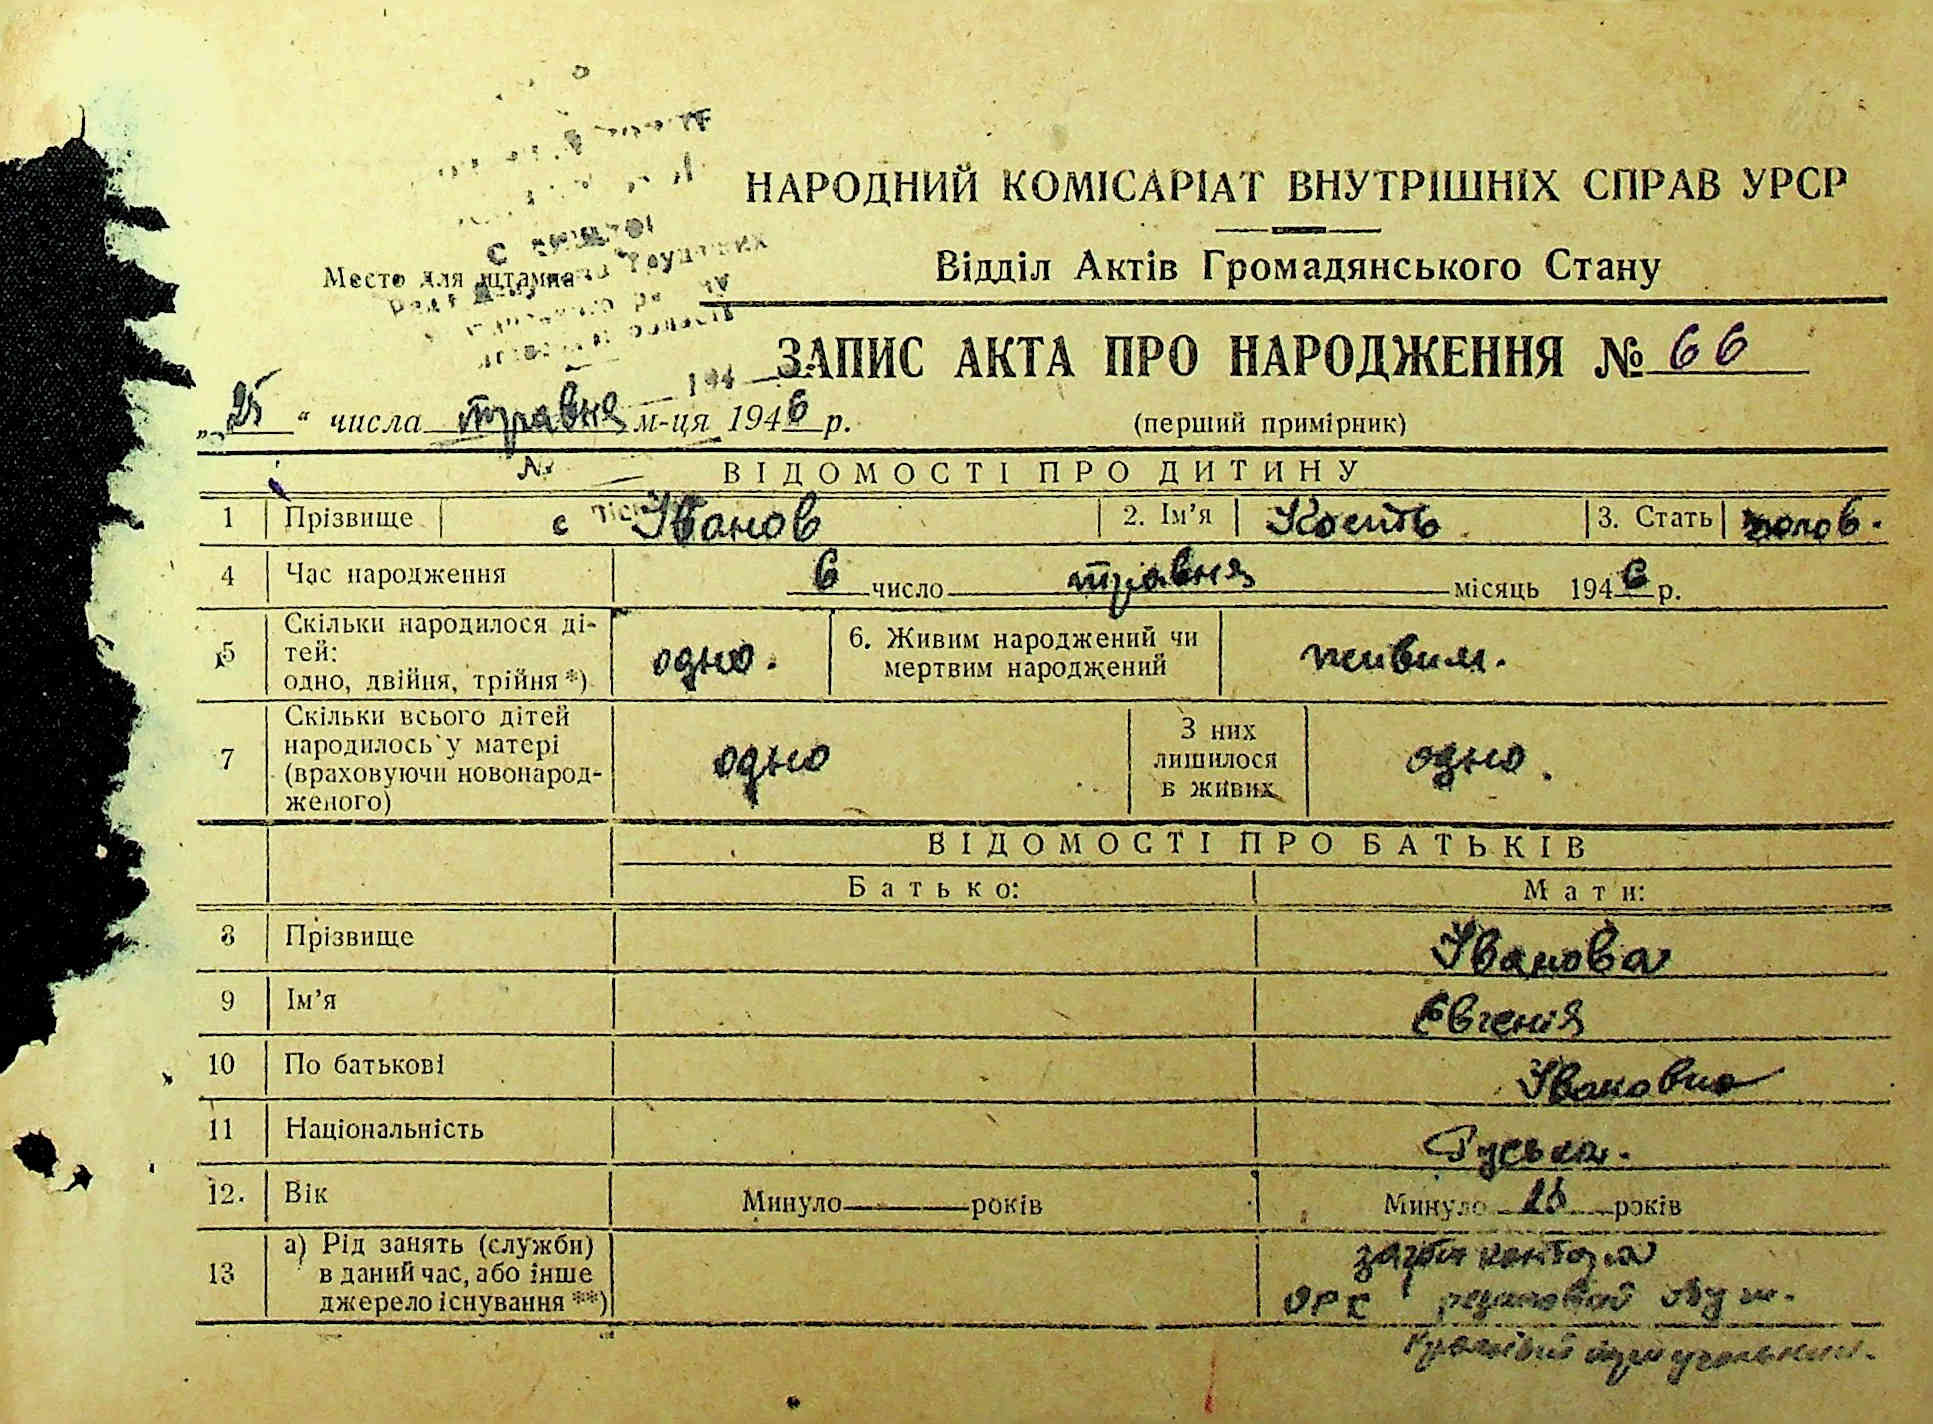 НАРОДНИЙ КОМІСАРІАТ ВНУТРІШНІХ СПРАВ УРСР
Відділ Актів Громадянського Стану
Место для штампа
ЗАПИС АКТА ПРО НАРОДЖЕННЯ № 66
„25“ числа травня м-ця 1946 р.
(перший примірник)
ВІДОМОСТІ ПРО ДИТИНУ
1 Прізвище Іванов 2. Ім’я Кость 3. Стать чолов.
4 Час народження 6 число травня місяць 1946 р.
5 Скільки народилося ді-
тей:
одно, двійня, трійня *) одно. 6. Живим народжений чи
мертвим народжений живим.
7 Скільки всього дітей
народилось у матері
(враховуючи новонарод-
женого) одно З них
лишилося
в живих одно.
ВІДОМОСТІ ПРО БАТЬКІВ
Батько: Мати:
8 Прізвище Іванова
9 Ім’я Євгенія
10 По батькові Івановна
11 Національність Руська.
12. Вік Минуло років Минуло років
13 а) Рід занять (служби)
в даний час, або інше
джерело існування **)